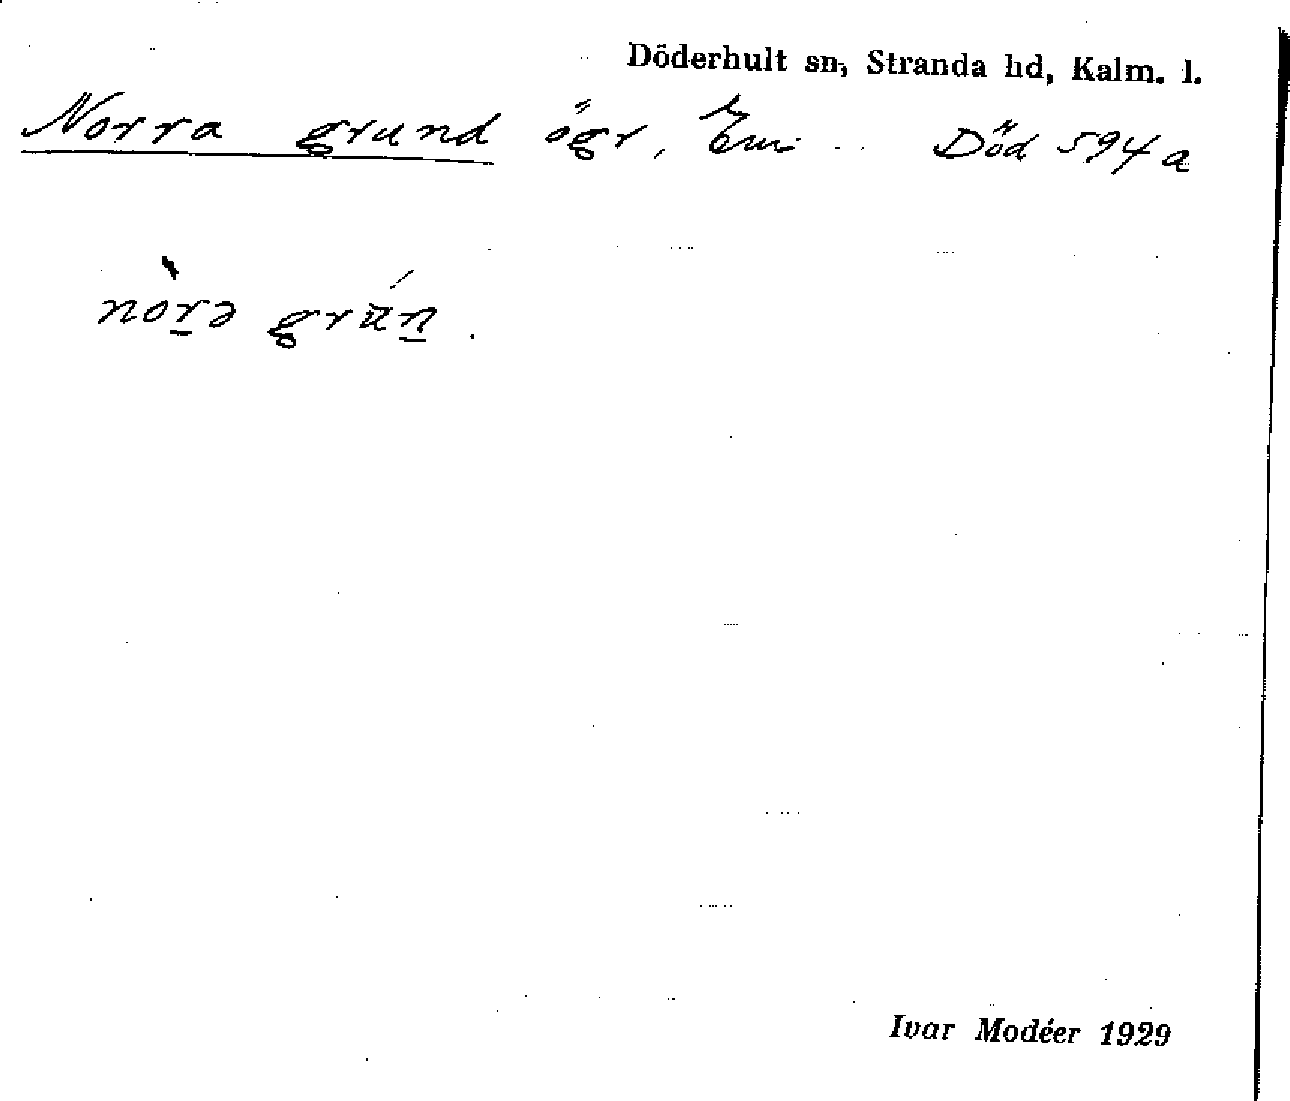 Döderhult sn, Stranda hd, Kalm. l.
Norra grund ögr, Em Död 594a
nòr̲ə grún̲.
Ivar Modéer 1929